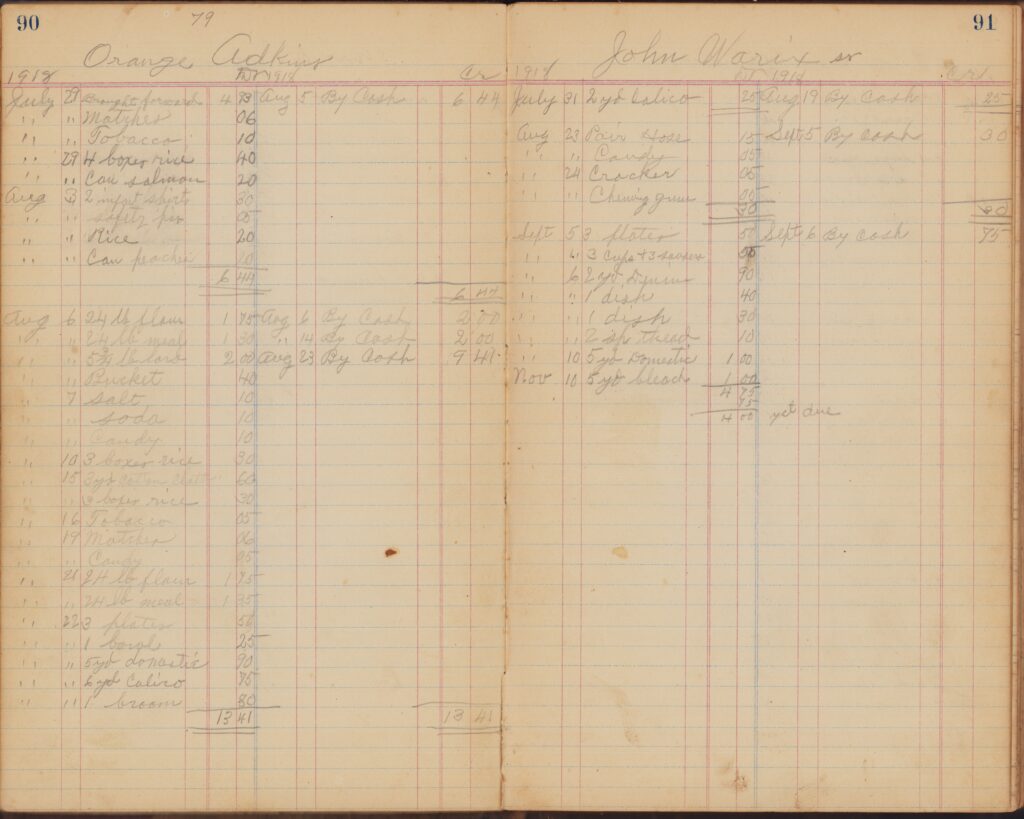 90 79
Orange Adkins
1918 Dr 1918 Cr
July 29 Brought forward 4 93 Aug 5 By Cash 6 44
" " Matches 06
" " Tobacco 10
" 29 4 boxes rice 40
" " Can salmon 20
Aug 3 2 infant shirts 30
" " safety pin 05
" " Rice 20
" " Can peaches
6 44
6 44
Aug 6 24 lb flour 1 75 Aug 6 By Cash 2 00
" " 24 lb meal 1 30 " 14 By Cash 2 00
" " lb lard 2 00 Aug 23 By Cash 9 41
" " Bucket 40
" 7 Salt 10
" " soda 10
" " Candy 10
" 10 3 boxes rice 30
" 15 3 yd cotton 60
" " 3 boxes rice 30
" 16 Tobacco 05
" 19 Matches 06
" " Candy 05
" 21 24 lb flour 1 75
" " 24 lb meal 1 35
" 22 3 plates 50
" " 1 bowl 25
" " 5 yd domestic 90
" " yd Calico 75
" " 1 broom 80
13 41 13 41
91
John Warix sr
1918 Dr 1918 Cr
July 31 2 yd Calico 25 Aug 19 By Cash 25
Aug 23 Pair Hose 15 Sept 5 By Cash 30
" " Candy 05
" 24 Cracker 05
" " Chewing gum 05
30 30
Sept 5 3 plates 50 Sept 6 By Cash 75
" " 3 Cups & 3 saucers 50
" 6 2 yd Denim 90
" " 1 dish 40
" " 1 dish 30
" " 2 sp thread 10
" 10 5 yd Domestic 1 00
Nov 10 5 yd bleach 1 00
4 75
75
4 00 yet due